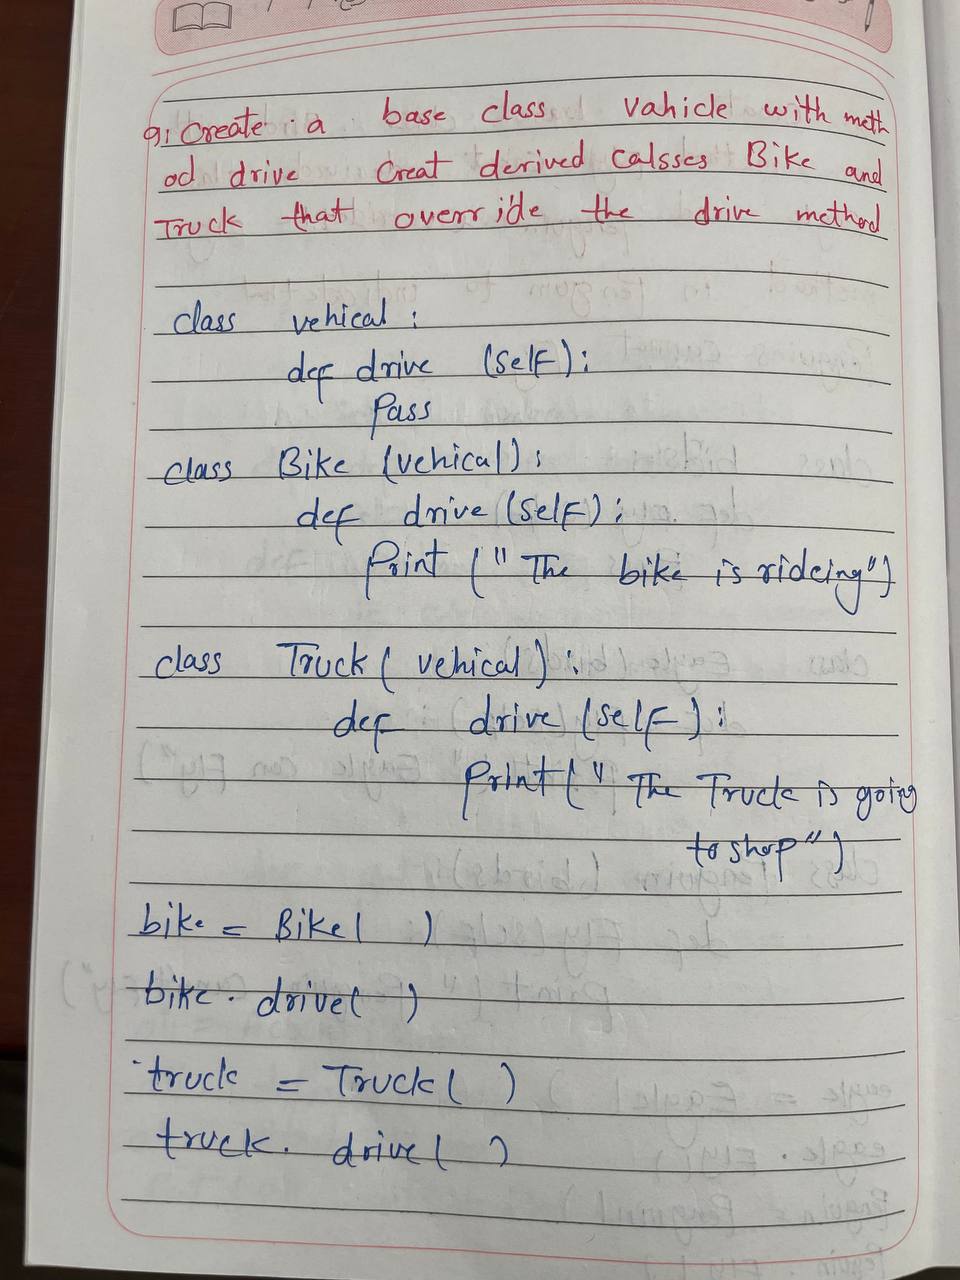 9: Create a base class vahicle with meth
od drive Creat derived calsses Bike and
Truck that override the drive method
class vehical :
def drive (self) :
Pass
class Bike (vehical) :
def drive (self) :
Print (" The bike is rideing")
class Truck ( vehical) :
def drive (self) :
Print (" The Truck is going
to shop")
bike = Bike( )
bike . drive( )
truck = Truck ( )
truck . drive( )